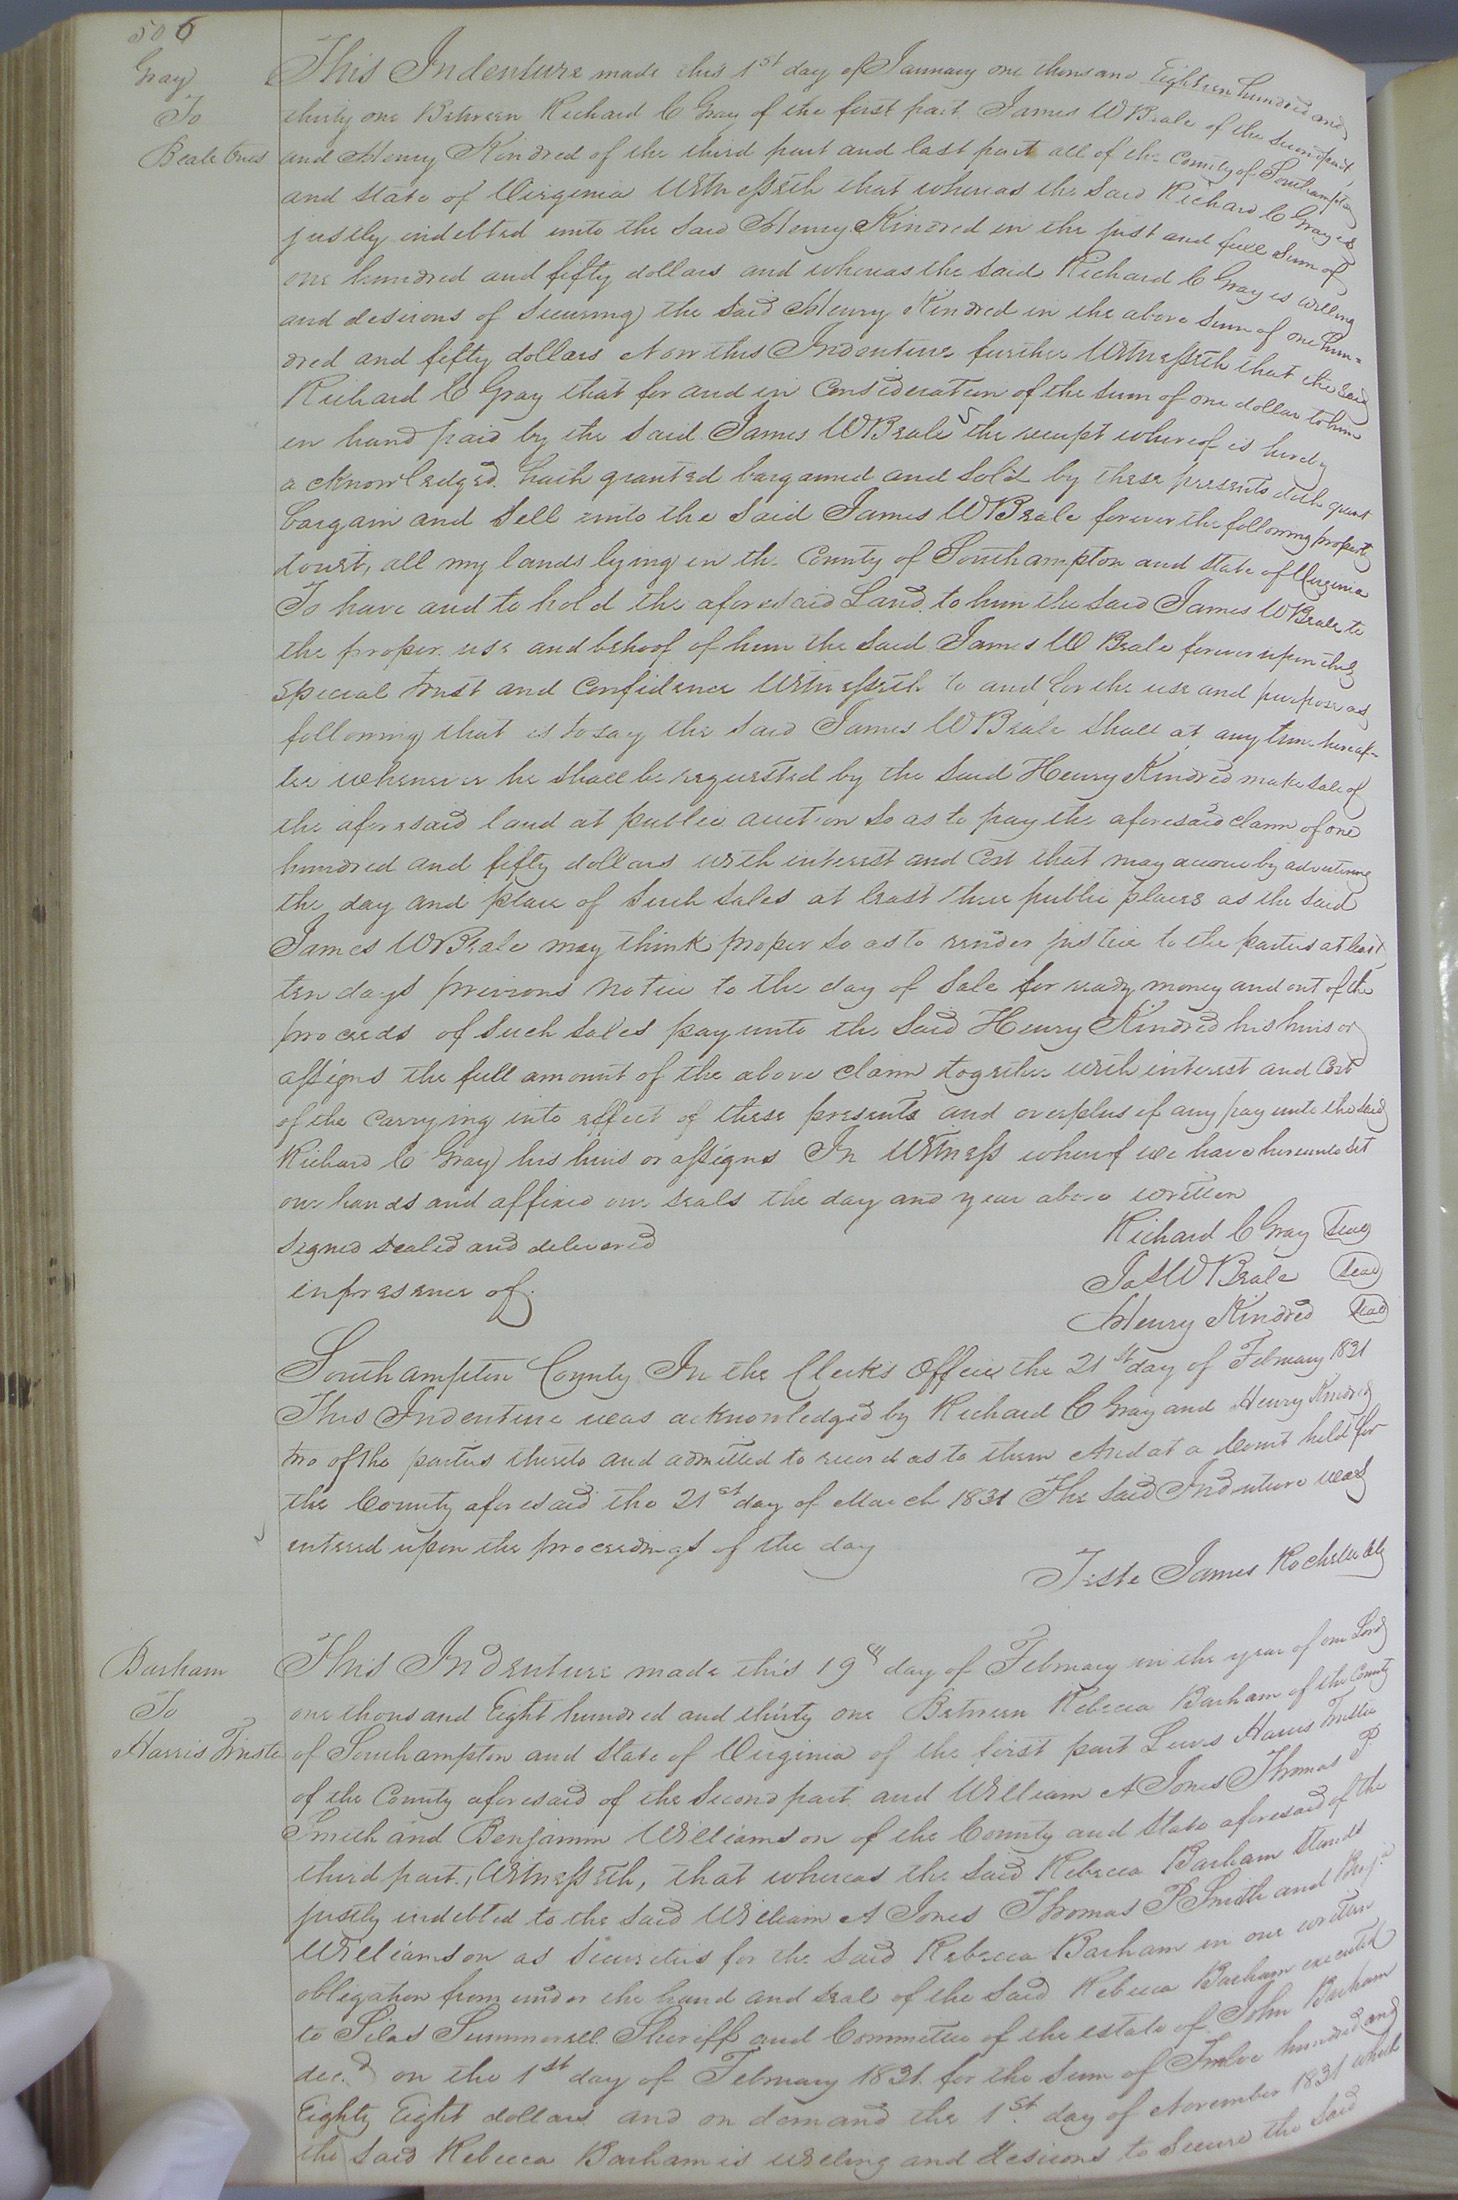 506
Gray
To
Beale Trus
This Indenture made this 1st day of January one thousand Eighteen hundred and
thirty one Between Richard C Gray of the first part James W Beale of the second part,
and Henry Kindred of the third part and last part all of the County of Southampton
and State of Virginia Witnesseth that whereas the said Richard C Gray is
justly indebted unto the said Henry Kindred in the just and full sum of
one hundred and fifty dollars and whereas the said Richard C Gray is willing
and desirous of securing the said Henry Kindred in the above sum of one hun=
dred and fifty dollars Now this Indenture further Witnesseth that the said
Richard C Gray that for and in Consideration of the sum of one dollar to him
in hand paid by the said James W Beale the receipt whereof is hereby
acknowledged. hath granted bargained and sold by these presents doth grant
bargain and sell unto the said James W Beale forever the following property
towit, all my lands lying in the County of Southampton and State of Virginia
To have and to hold the aforesaid Land to him the said James W Beale to
the proper use and behoof of him the said James W Beale forever upon this
special trust and confidence Witnesseth to and for the use and purpose as
following that is to say the said James W Beale shall at any time hereaf-
ter whenever he shall be requested by the said Henry Kindred make sale of
the aforesaid land at public auction so as to pay the aforesaid claim of one
hundred and fifty dollars with interest and Cost that may accrue by advertising
the day and place of such sales at least three public places as the said
James W Beale may think proper so as to render justice to the parties at least
ten days previous notice to the day of sale for ready money and out of the
proceeds of such sales pay unto the said Henry Kindred his heirs or
assigns the full amount of the above claim together with interest and Cost
of the carrying into effect of these presents and overplus if any pay unto the said
Richard C Gray his heirs or assigns In Witness whereof we have hereunto set
our hands and affixed our seals the day and year above written
Signed sealed and delivered
in presence of
Richard C Gray Seal
Jas W Beale Seal
Henry Kindred Seal
Southampton County In the Clerk's Office the 21st day of February 1831
This Indenture was acknowledged by Richard C Gray and Henry Kindred
two of the parties thereto and admitted to record as to them And at a Court held for
the County aforesaid the 21st day of March 1831 The said Indenture was
entered upon the proceedings of the day
Teste James Rochelle Clk
Barham
To
Harris Truste
This Indenture made this 19th day of February in the year of our Lord
one thousand Eight hundred and thirty one Between Rebecca Barham of the County
of Southampton and State of Virginia of the first part Lewis Harris Trustee
of the County aforesaid of the second part and William A Jones Thomas P
Smith and Benjamin Williamson of the County and State aforesaid of the
third part, Witnesseth, that whereas the said Rebecca Barham stands
justly indebted to the said William A Jones Thomas P Smith and Benja
Williamson as securities for the said Rebecca Barham in one written
obligation from under the hand and seal of the said Rebecca Barham executed
to Silas Summerell Sheriff and Committee of the estate of John Barham
decd on the 1st day of February 1831 for the sum of Twelve hundred and
Eighty Eight dollars and on demand the 1st day of November 1831 which
the said Rebecca Barham is willing and desirous to secure the said